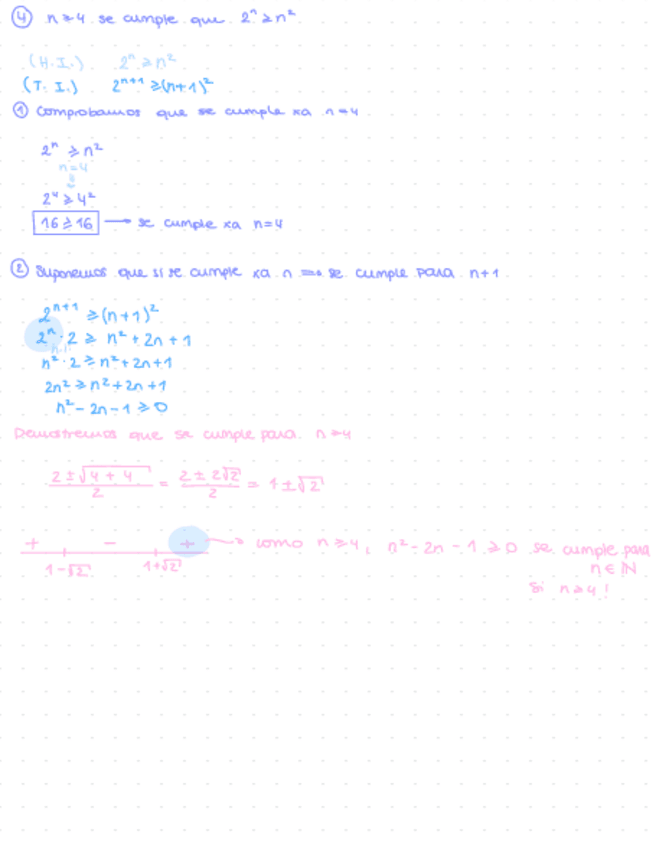 ④ n ≥ 4 se cumple que 2ⁿ ≥ n²
(H.I.) 2ⁿ ≥ n²
(T.I.) 2ⁿ⁺¹ ≥ (n+1)²
① Comprobamos que se cumple xa n=4
2ⁿ ≥ n²
n=4
2⁴ ≥ 4²
16 ≥ 16 → se cumple xa n=4
② Suponemos que si se cumple xa n ⇒ se cumple para n+1
2ⁿ⁺¹ ≥ (n+1)²
2ⁿ · 2 ≥ n² + 2n + 1
n² · 2 ≥ n² + 2n + 1
2n² ≥ n² + 2n + 1
n² - 2n - 1 ≥ 0
Demostremos que se cumple para n ≥ 4
2 ± √4 + 4 / 2 = 2 ± 2√2 / 2 = 1 ± √2
+ - + → como n ≥ 4, n² - 2n - 1 ≥ 0 se cumple para
1-√2 1+√2 n ∈ ℕ
si n ≥ 4!